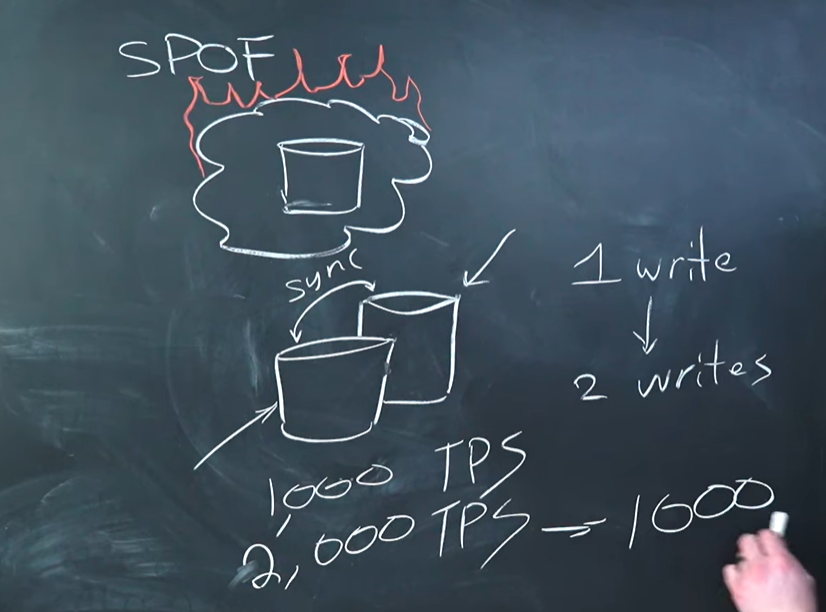 SPOF
sync
1 write
2 writes
1,000 TPS
2,000 TPS → 1000